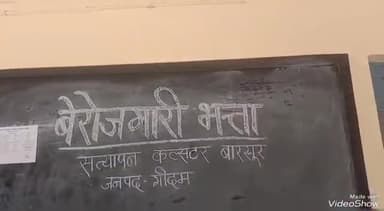 बेरोजगारी भत्ता
सत्यापन कलस्टर बारसूर
जनपद-गीदम
Made with
VideoShow